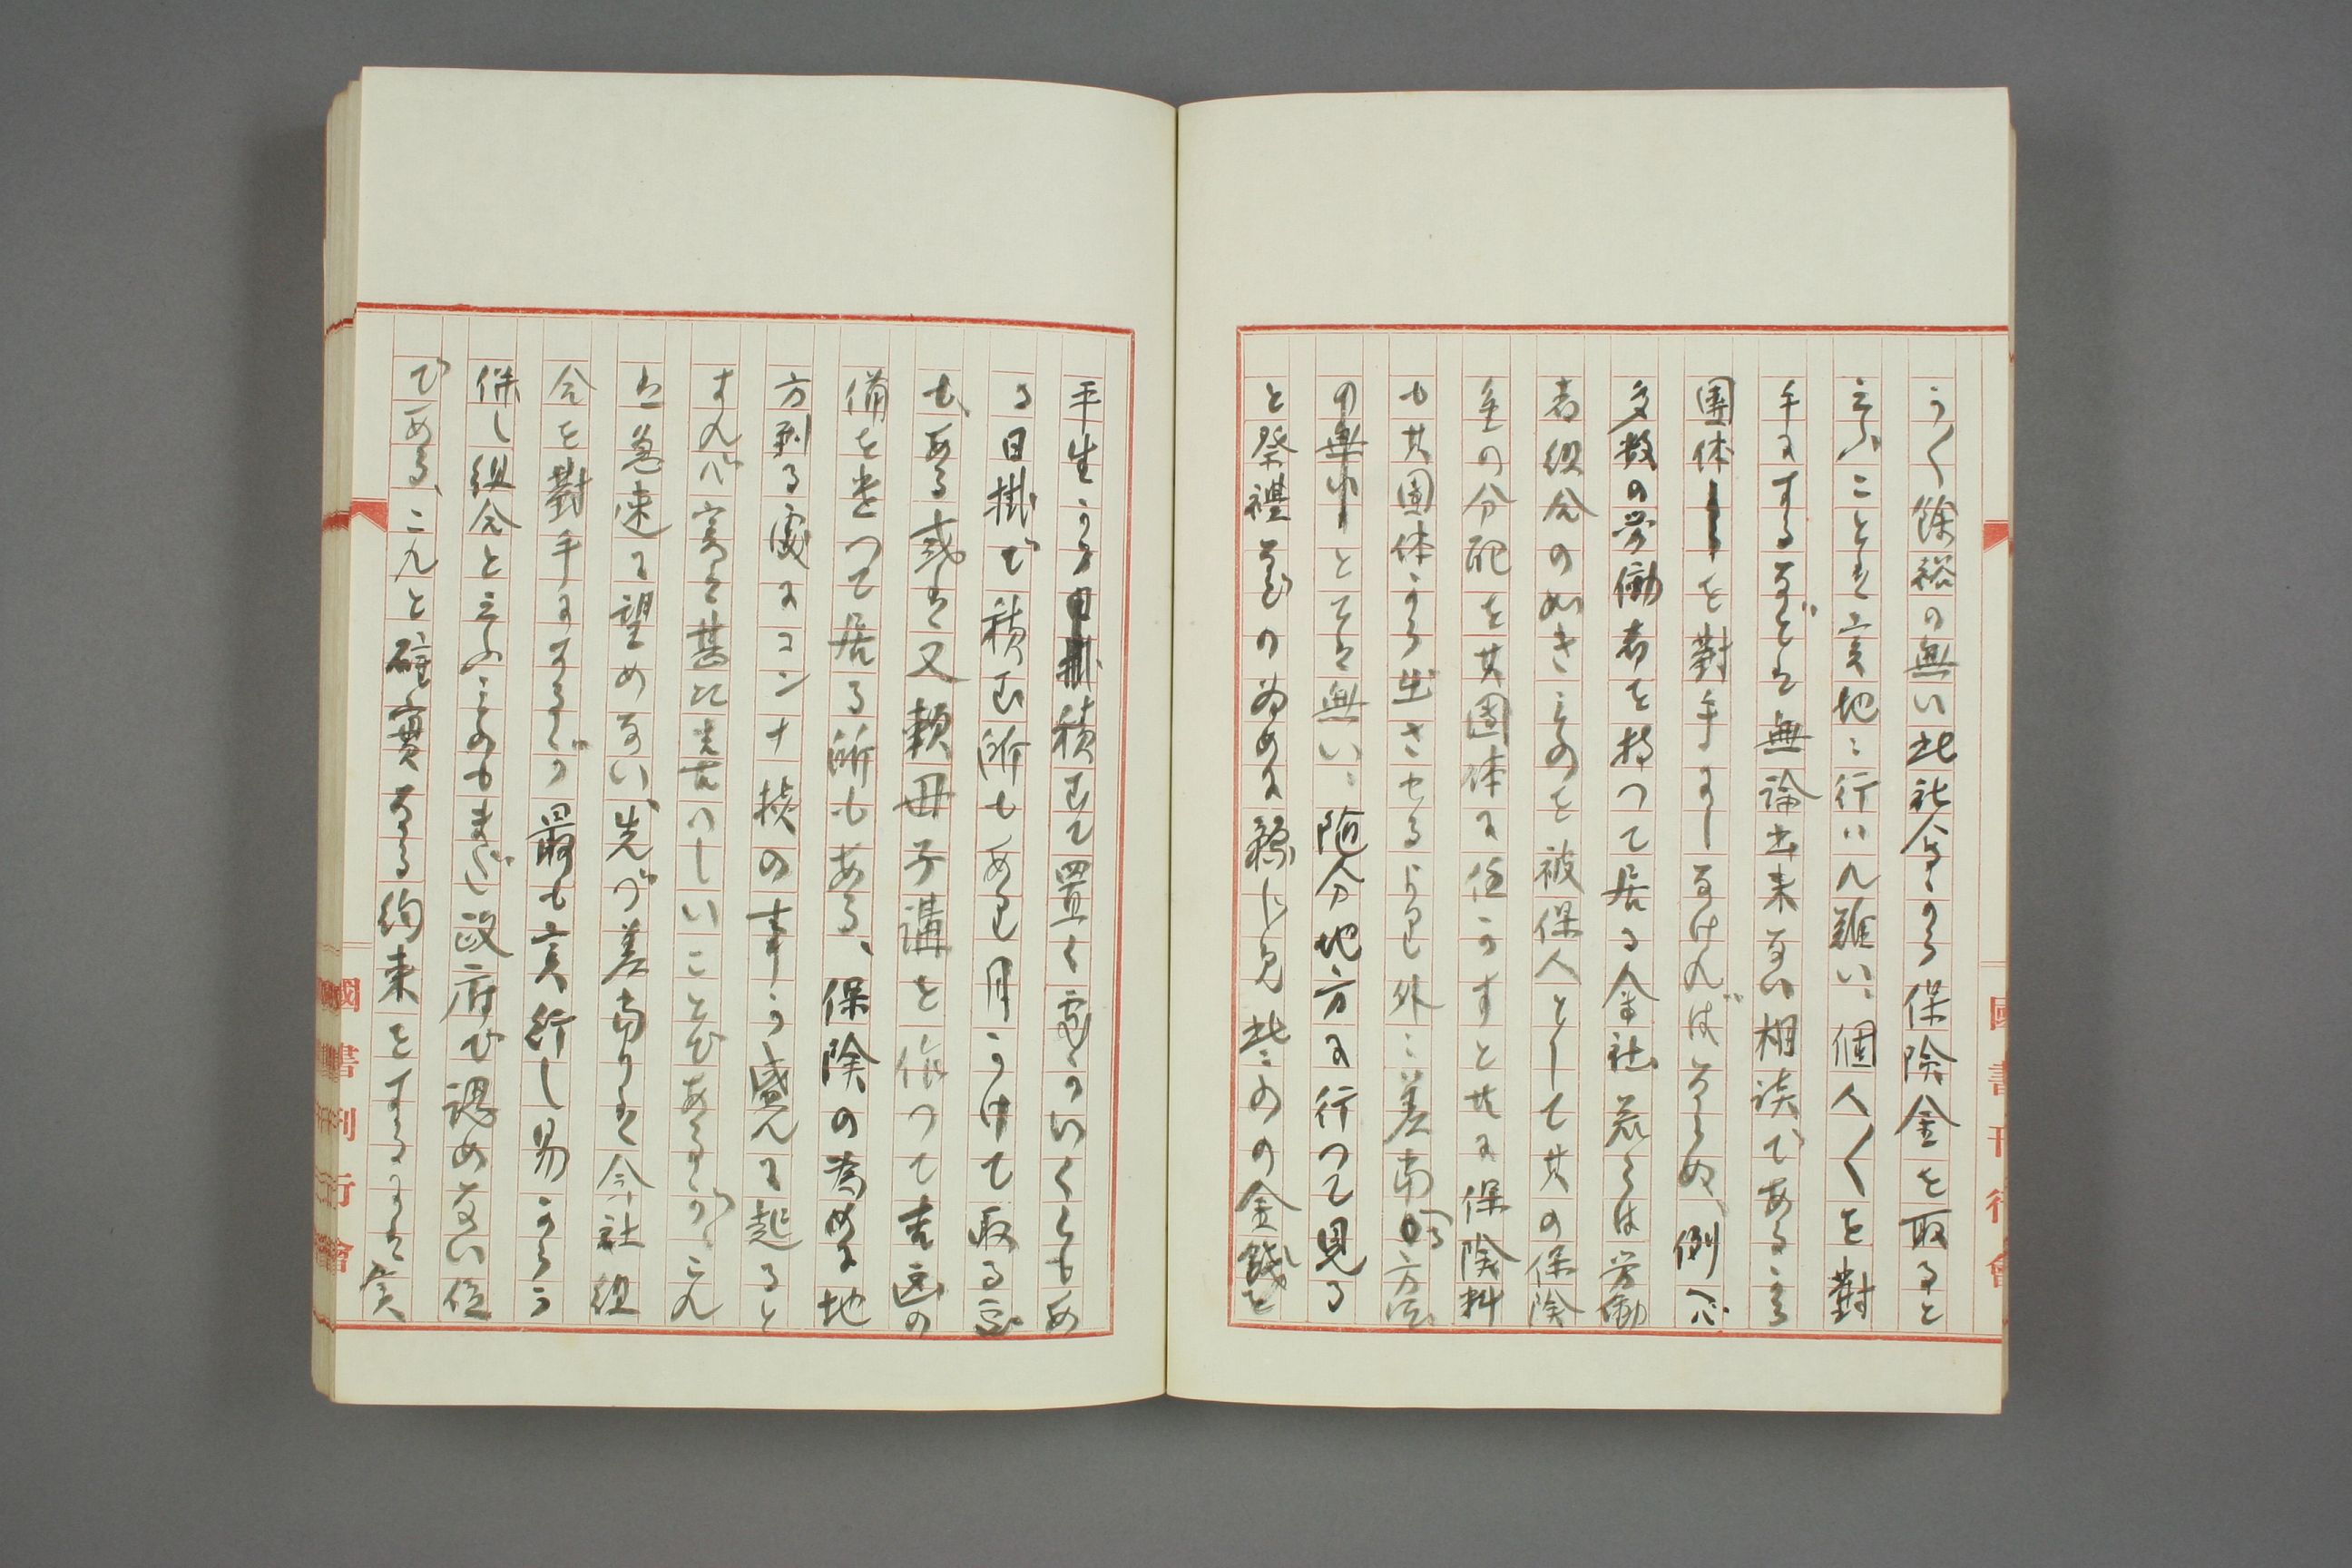 うく餘裕の無い此社会から保険金を取ると
云ふことは実地に行はれ難い、個人〱を對
手にするなどは無論出来ない相談であるから
團体を對手にしなければならぬ、例へば
多数の労働者を持つて居る会社若くは労働
者組合の如きものを被保人として其の保険
金の分配を其團体に任かすと共に保険料
も其團体から出させるより外に差当る方法
の無いとては無い、随分地方に行つて見る
と祭禮などの為めに頼りに見此ものの金銭を
平生から積むで置く處がいくらもあ
る日掛で積む所もあり月かけて取る家
もある或は又頼母子講を作つて吉凶の
備を遣つて居る所もある、保険の為めに地
方到る處にコンナ按の事が盛んに起ると
すれば実は甚だ芽出つしいことであるが、これ
は急速に望めない、先づ差当りは会社組
合を對手にするが最も実行し易からう
併し組合と云ふものもまだ政府で認めない位
である、これと確實なる約束をするには実
國書刊行會
國書刊行會